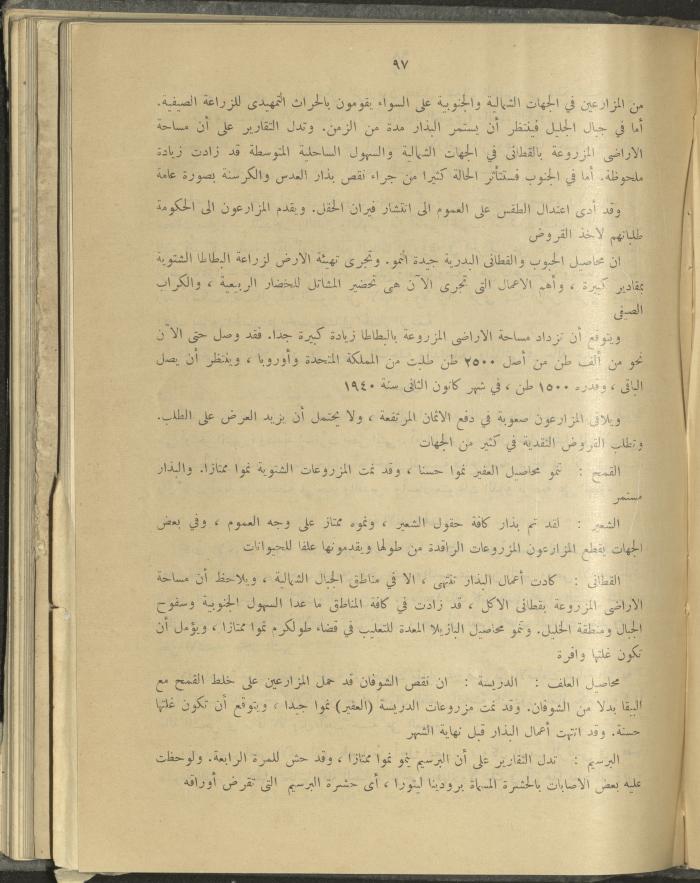 ٩٧
من المزارعين في الجهات الشمالية والجنوبية على السواء يقومون بالحراث التمهيدى للزراعة الصيفية.
أما في جبال الجليل فينتظر أن يستمر البذار مدة من الزمن. وتدل التقارير على أن مساحة
الاراضى المزروعة بالقطانى في الجهات الشمالية والسهول الساحلية المتوسطة قد زادت زيادة
ملحوظة. أما في الجنوب فستتأثر الحالة كثيرا من جراء نقص بذار العدس والكرسنة بصورة عامة
وقد أدى اعتدال الطقس على العموم الى انتشار فيران الحقل. ويقدم المزارعون الى الحكومة
طلباتهم لاخذ القروض
ان محاصيل الحبوب والقطانى البدرية جيدة النمو. وتجرى تهيئة الارض لزراعة البطاطا الشتوية
بمقادير كبيرة ، وأهم الاعمال التى تجرى الآن هى تحضير المشاتل للخضار الربيعية ، والكراب
الصيفى
ويتوقع أن تزداد مساحة الاراضى المزروعة بالبطاطا زيادة كبيرة جدا. فقد وصل حتى الآن
نحو من ألف طن من أصل ٢٥٠٠ طن طلبت من المملكة المتحدة وأوروبا ، وينتظر أن يصل
الباقى ، وقدره ١٥٠٠ طن ، في شهر كانون الثانى سنة ١٩٤٠
ويلاقى المزارعون صعوبة في دفع الاثمان المرتفعة ، ولا يحتمل أن يزيد العرض على الطلب.
وتطلب القروض النقدية في كثير من الجهات
القمح : تنمو محاصيل العفير نموا حسنا ، وقد نمت المزروعات الشتوية نموا ممتازا. والبذار
مستمر
الشعير : لقد تم بذار كافة حقول الشعير ، ونموه ممتاز على وجه العموم ، وفي بعض
الجهات يقطع المزارعون المزروعات الراقدة من طولها ويقدمونها علفا للحيوانات
القطانى : كادت أعمال البذار تنتهى ، الا في مناطق الجبال الشمالية ، ويلاحظ أن مساحة
الاراضى المزروعة بقطانى الاكل ، قد زادت في كافة المناطق ما عدا السهول الجنوبية وسفوح
الجبال ومنطقة الخليل. وتنمو محاصيل البازيلا المعدة للتعليب في قضاء طولكرم نموا ممتازا ، ويؤمل أن
تكون غلتها وافرة
محاصيل العلف : الدريسة : ان نقص الشوفان قد حمل المزارعين على خلط القمح مع
البيقا بدلا من الشوفان. وقد نمت مزروعات الدريسة (العفير) نموا جيدا ، ويتوقع أن تكون غلتها
حسنة. وقد انتهت أعمال البذار قبل نهاية الشهر
البرسيم : تدل التقارير على أن البرسيم ينمو نموا ممتازا ، وقد حش للمرة الرابعة. ولوحظت
عليه بعض الاصابات بالحشرة المسماة برودينا ليتورا ، أى حشرة البرسيم التى تقرض أوراقه